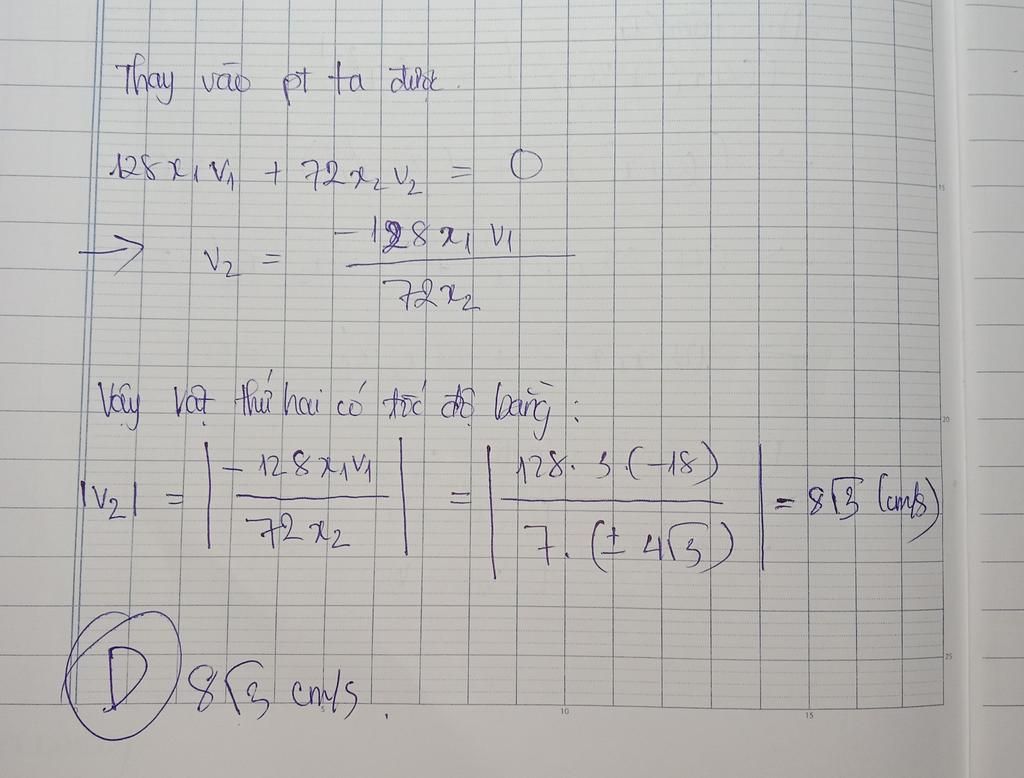 Thay vào pt ta được.
128x₁v₁ + 72x₂v₂ = 0
→ v₂ = \frac{-128x₁v₁}{72x₂}
Vậy vật thứ hai có tốc độ bằng:
|v₂| = |\frac{-128x₁v₁}{72x₂}| = |\frac{128.3.(-18)}{7.(±4√3)}| = 8√3 (cm/s)
D 8√3 cm/s.
15
20
25
10
15